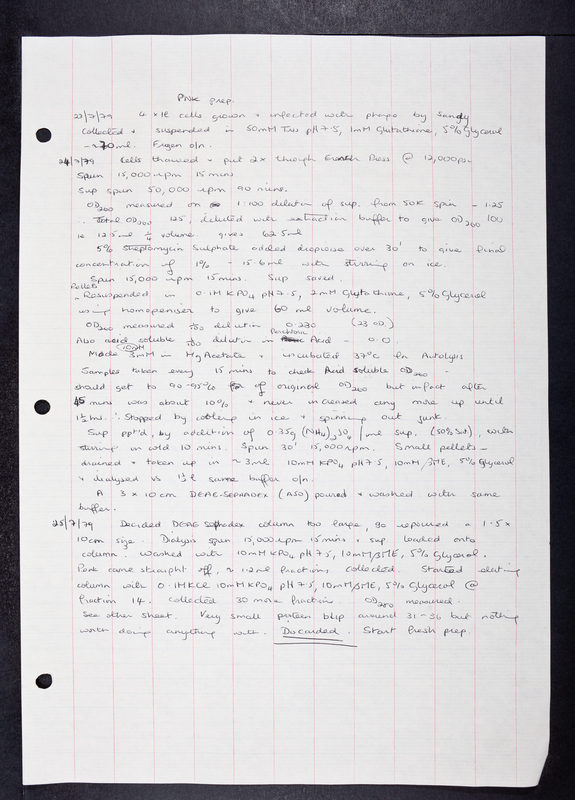 PNK prep.
22/7/79 4 x 1l cells grown & infected with phage by Sandy
Collected & suspended in 50mM Tris pH 7.5, 1mM Glutathione, 5% Glycerol
~ 70 ml. Frozen o/n.
24/7/79 Cells thawed & put 2x through Press @ 12,000psi
Spun 15,000 rpm 15 mins
Sup spun 50,000 rpm 90 mins.
OD260 measured on 1:100 dilution of sup. from 50K spin - 1.25
∴ Total OD260 125, diluted with extraction buffer to give OD260 100
ie 12.5ml volume gives 62.5ml
5% Streptomycin Sulphate added dropwise over 30' to give final
concentration of 1% - 15.6 ml with stirring on ice.
Spun 15,000 rpm 15 mins. Sup saved.
Pellets
Resuspended in 0.1M KPO4 pH 7.5, 2mM Glutathione, 5% Glycerol
using homogeniser to give 60 ml volume.
OD260 measured 1/100 dilution 0.230 (23 OD.)
Also acid soluble dilution in Perchloric Acid - 0.0
Made 3mM in Mg Acetate & incubated 37°C for Autolysis
Samples taken every 15 mins to check Acid Soluble OD260 -
should get to 90-95% of original OD260 but in fact after
45 mins was about 10% & never increased any more up until
1½ hrs. ∴ Stopped by cooling in ice & spinning out junk.
Sup ppt'd, by addition of 0.35g (NH4)2SO4 /ml sup. (50% Sat), with
stirring in cold 10 mins. Spun 30' 15,000 rpm. Small pellets -
drained & taken up in ~ 3ml 10mM KPO4 pH 7.5, 10mM βME, 5% Glycerol
& dialysed vs same buffer o/n.
A 3 x 10 cm DEAE-SEPHADEX (A50) poured & washed with same
buffer.
25/7/79 Decided DEAE Sephadex column too large, so repoured a 1.5 x
10cm size. Dialysis spun 15,000 rpm 15 mins & sup loaded onto
column. Washed with 10mM KPO4 pH 7.5, 10mM βME, 5% Glycerol.
Peak came straight off, ~ 1.2ml fractions collected. Started eluting
column with 0.1M KCl 10mM KPO4 pH 7.5, 10mM βME, 5% Glycerol @
fraction 14. Collected 30 more fractions. OD280 measured.
See other sheet. Very small protein blip around 31-36 but nothing
worth doing anything with. Discarded. Start fresh prep.